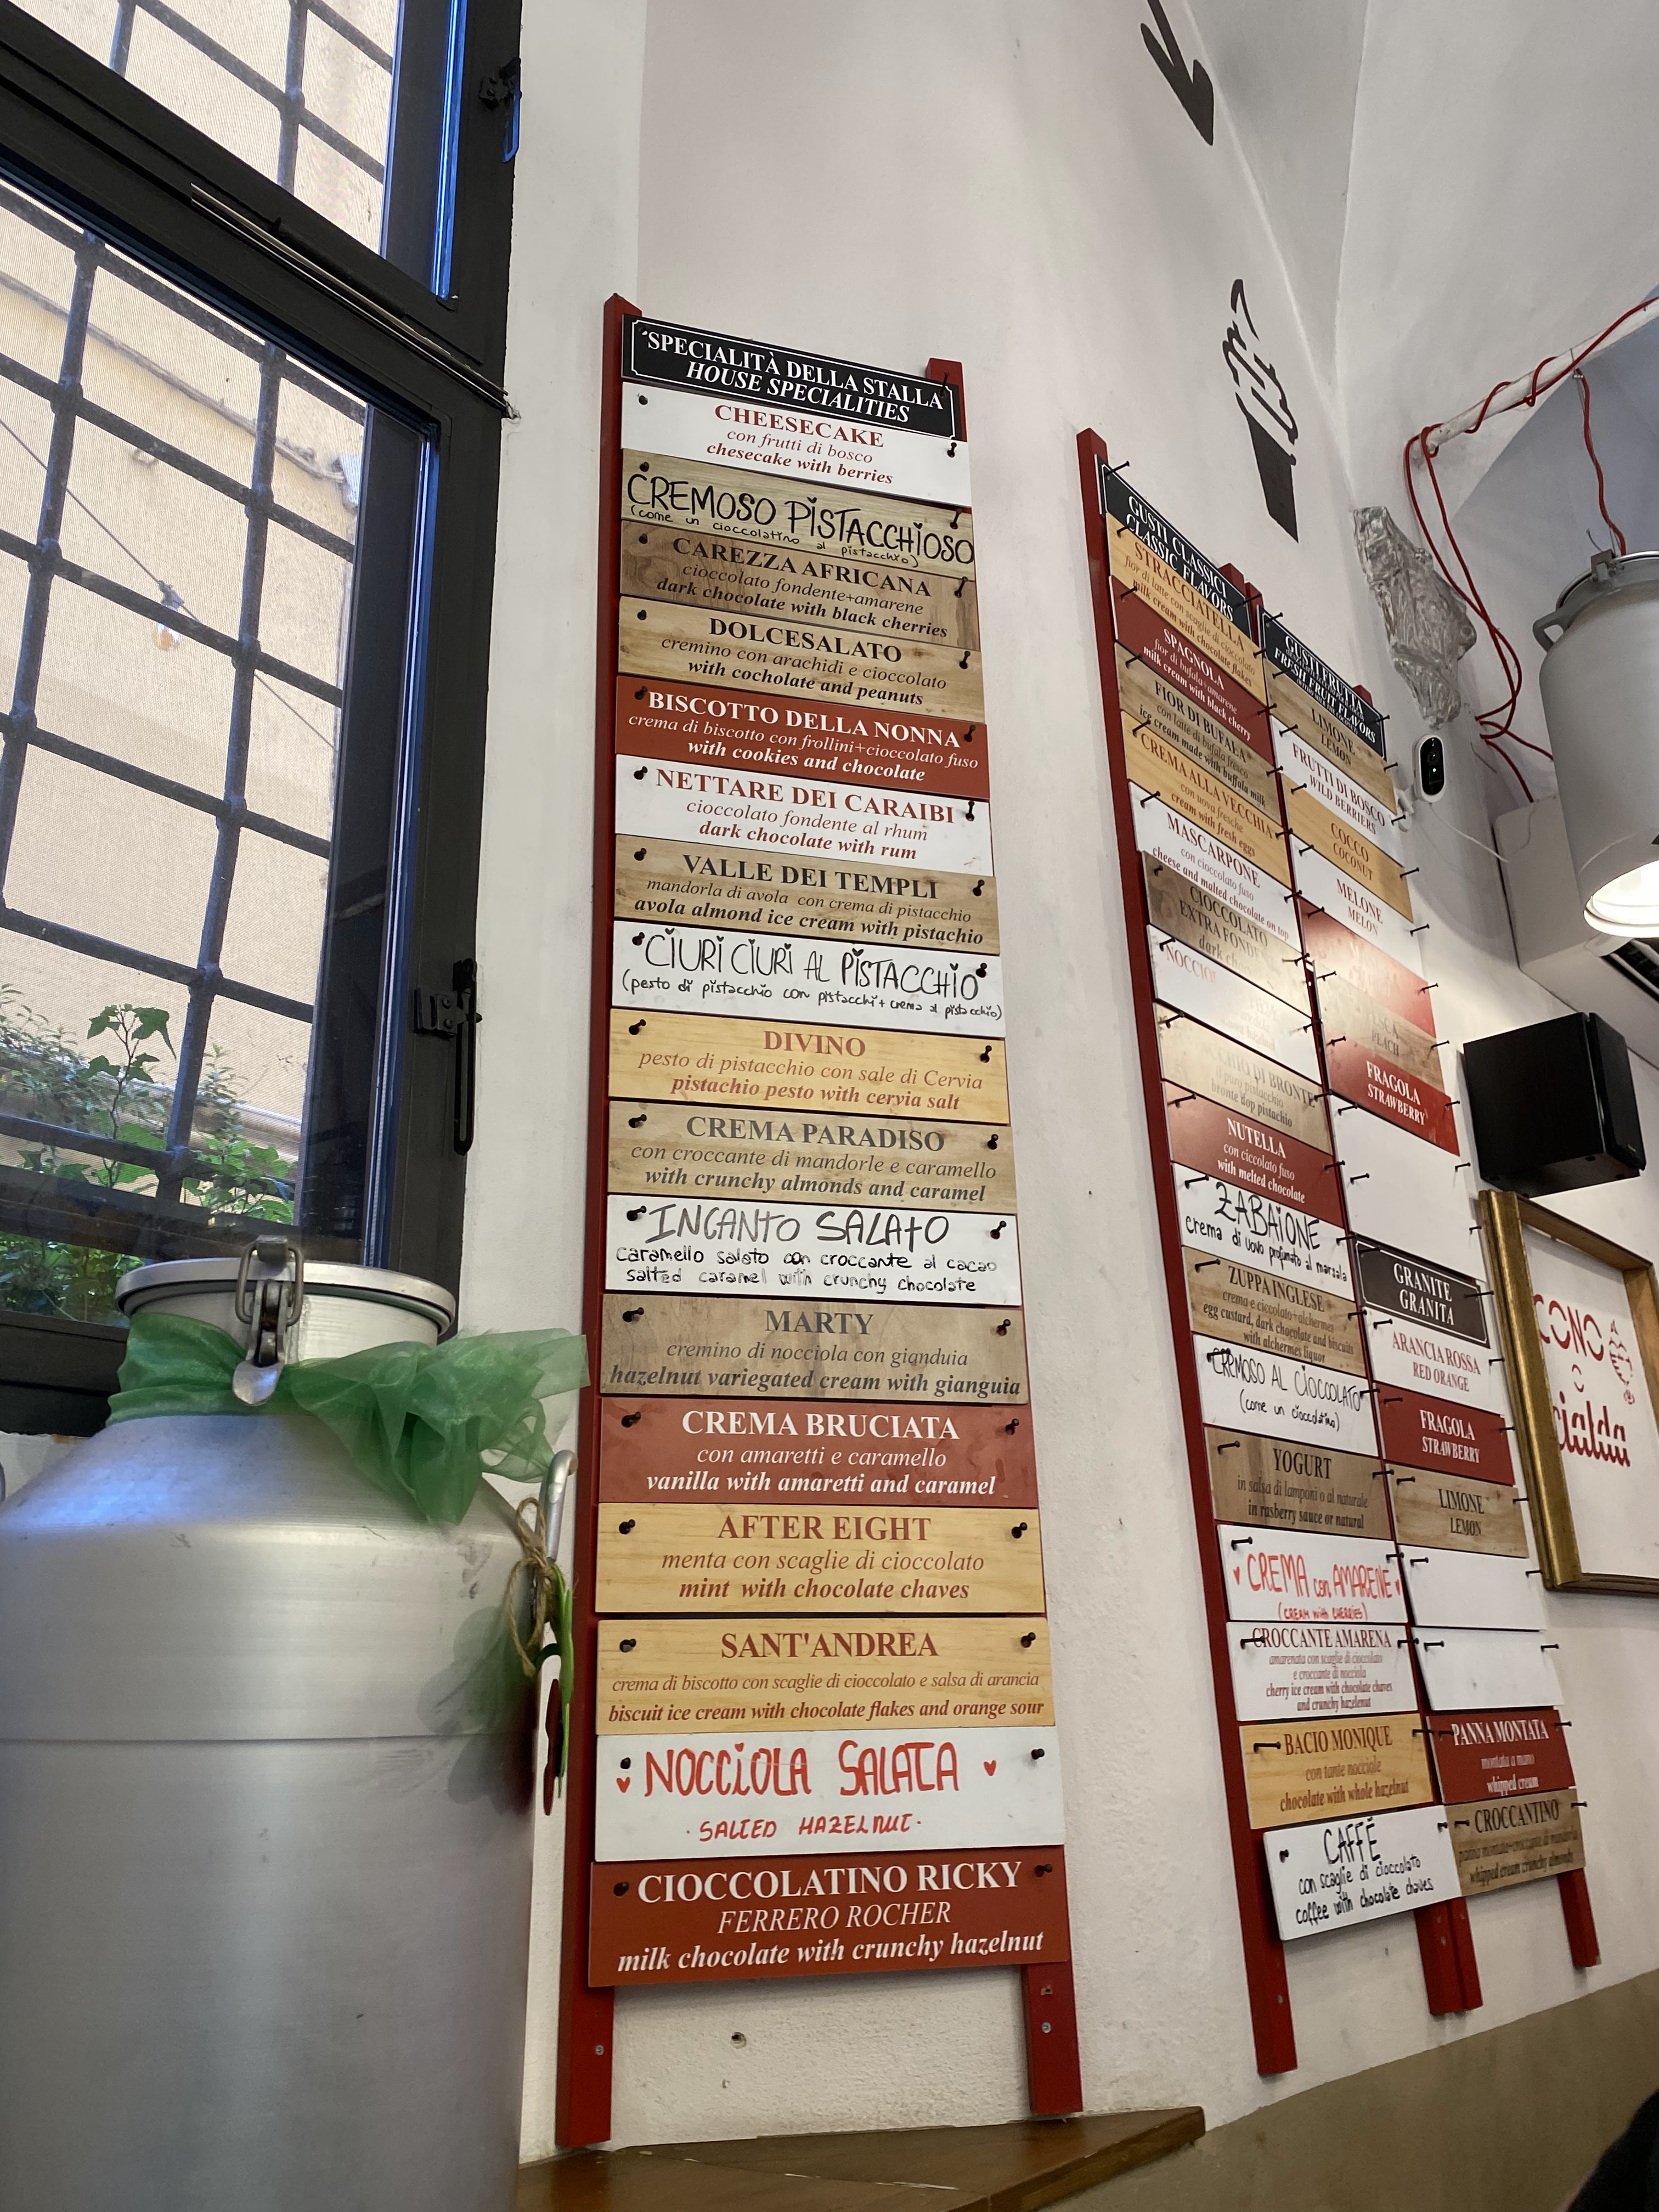 SPECIALITÀ DELLA STALLA
HOUSE SPECIALITIES
CHEESECAKE
con frutti di bosco
chesecake with berries
CREMOSO PISTACCHIOSO
(come un cioccolatino al pistacchio)
CAREZZA AFRICANA
cioccolato fondente+amarene
dark chocolate with black cherries
DOLCESALATO
cremino con arachidi e cioccolato
with cocholate and peanuts
BISCOTTO DELLA NONNA
crema di biscotto con frollini+cioccolato fuso
with cookies and chocolate
NETTARE DEI CARAIBI
cioccolato fondente al rhum
dark chocolate with rum
VALLE DEI TEMPLI
mandorla di avola con crema di pistacchio
avola almond ice cream with pistachio
CIURI CIURI AL PISTACCHIO
(pesto di pistacchio con pistacchi+crema al pistacchio)
DIVINO
pesto di pistacchio con sale di Cervia
pistachio pesto with cervia salt
CREMA PARADISO
con croccante di mandorle e caramello
with crunchy almonds and caramel
INCANTO SALATO
caramello salato con croccante al cacao
salted caramel with crunchy chocolate
MARTY
cremino di nocciola con gianduia
hazelnut variegated cream with gianguia
CREMA BRUCIATA
con amaretti e caramello
vanilla with amaretti and caramel
AFTER EIGHT
menta con scaglie di cioccolato
mint with chocolate chaves
SANT'ANDREA
crema di biscotto con scaglie di cioccolato e salsa di arancia
biscuit ice cream with chocolate flakes and orange sour
NOCCIOLA SALATA
· SALTED HAZELNUT ·
CIOCCOLATINO RICKY
FERRERO ROCHER
milk chocolate with crunchy hazelnut
GUSTI CLASSICI
CLASSIC FLAVORS
STRACCIATELLA
fior di latte con scaglie di cioccolato
milk cream with chocolate flakes
SPAGNOLA
fior di bufala+amarene
milk cream with black cherry
FIOR DI BUFALA
con latte di bufala fresco
ice cream made with buffala milk
CREMA ALLA VECCHIA
con uova fresche
cream with fresh eggs
MASCARPONE
con cioccolato fuso
cheese and malted chocolate on top
CIOCCOLATO
EXTRA FOND
dark
NOCCIO
DI BRONTE
bronte dop pistachio
NUTELLA
con ciccolato fuso
with melted chocolate
ZABAIONE
crema di uovo profumato al marsala
ZUPPA INGLESE
crema e ciccolato+alchermes
egg custard, dark chocolate and biscuits
with alchermes liquor
CREMOSO AL CIOCCOLATO
(come un cioccolatino)
YOGURT
in salsa di lamponi o al naturale
in rasberry sauce or natural
CREMA con AMARENE
(CREAM with CHERRIES)
CROCCANTE AMARENA
amarenata con scaglie di cioccolato
e croccante di nocciola
cherry ice cream with chocolate chaves
and crunchy hazelenut
BACIO MONIQUE
con tante nocciole
chocolate with whole hazelnut
CAFFÉ
con scaglie di cioccolato
coffee with chocolate chaves
GUSTI FRUTTA
FRESH FRUIT FLAVORS
LIMONE
LEMON
FRUTTI DI BOSCO
WILD BERRIERS
COCCO
COCONUT
MELONE
MELON
PEACH
FRAGOLA
STRAWBERRY
GRANITE
GRANITA
ARANCIA ROSSA
RED ORANGE
FRAGOLA
STRAWBERRY
LIMONE
LEMON
PANNA MONTATA
montata a mano
whipped cream
CROCCANTINO
panna montata+croccante di mandorla
whipped cream crunchy almonds
CONO
O
cialda